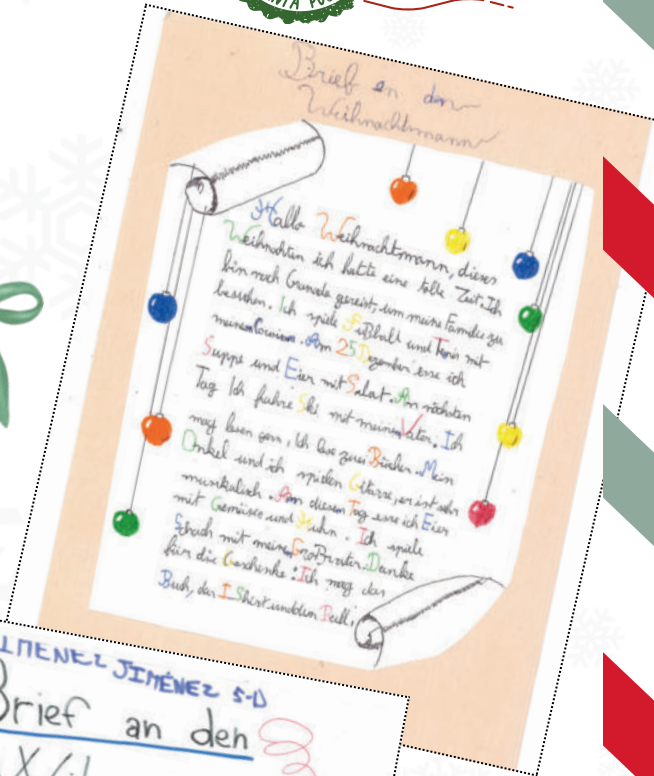 Brief an den
Weihnachtsmann
Hallo Weihnachtsmann, dieses
Weihnachten ich hatte eine tolle Zeit. Ich
bin nach Granada gereist, um meine Familie zu
besuchen. Ich spiele Fußball und Tenis mit
meinem Cousin. Am 25 Dezember esse ich
Suppe und Eier mit Salat. Am nächsten
Tag Ich fuhre Ski mit meinen Vater. Ich
mag lesen gern, Ich lese zwei Bücher. Mein
Onkel und ich spielen Gitarre, er ist sehr
musikalisch. Am diesem Tag esse ich Eier
mit Gemüse und Huhn. Ich spiele
Schach mit meinem Großvater. Danke
für die Geschenke! Ich mag das
Buch, das T-Shirt und den Ball!
JIMÉNEZ 5-D
Brief an den